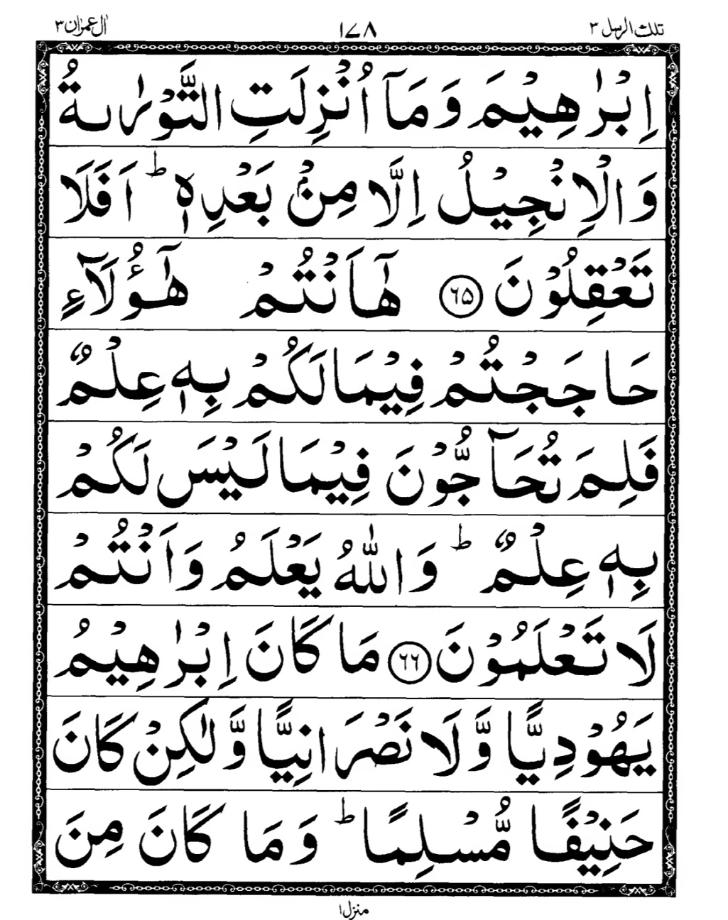 تلك الرسل ٣ ١٧٨ اٰل عمرٰن ٣
اِبْرٰهِيْمَ وَمَاۤ اُنْزِلَتِ التَّوْرٰىةُ
وَالْاِنْجِيْلُ اِلَّا مِنْۢ بَعْدِهٖ ؕ اَفَلَا
تَعْقِلُوْنَ ﴿٦٥﴾ هٰۤاَنْتُمْ هٰۤؤُلَآءِ
حَاجَجْتُمْ فِيْمَا لَكُمْ بِهٖ عِلْمٌ
فَلِمَ تُحَآجُّوْنَ فِيْمَا لَيْسَ لَكُمْ
بِهٖ عِلْمٌ ؕ وَاللّٰهُ يَعْلَمُ وَاَنْتُمْ
لَا تَعْلَمُوْنَ ﴿٦٦﴾ مَا كَانَ اِبْرٰهِيْمُ
يَهُوْدِيًّا وَّلَا نَصْرَانِيًّا وَّلٰكِنْ كَانَ
حَنِيْفًا مُّسْلِمًا ؕ وَمَا كَانَ مِنَ
منزل ١